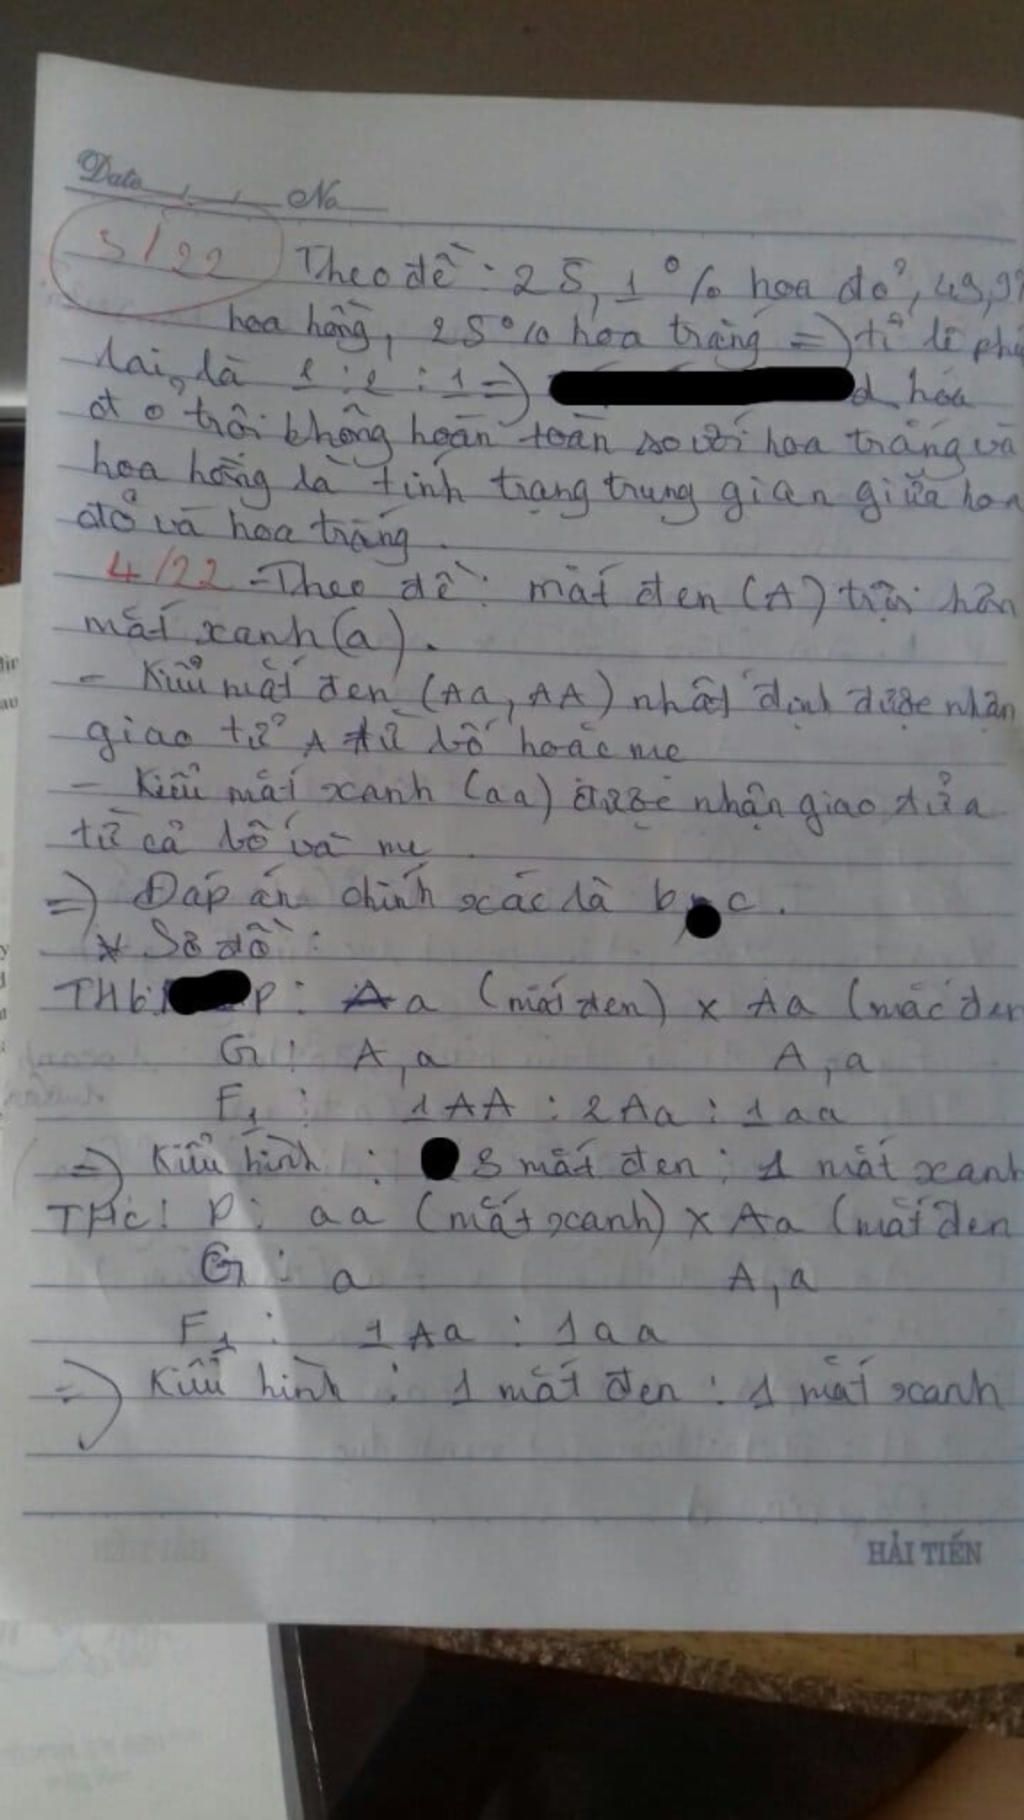 Date / / No
3/22 Theo đề: 25,1% hoa đỏ, 49,9%
hoa hồng, 25% hoa trắng => tỉ lệ
lai là 1:2:1 => d, hoa
đỏ trội không hoàn toàn so với hoa trắng và
hoa hồng là tính trạng trung gian giữa hoa
đỏ và hoa trắng.
4/22 - Theo đề: mắt đen (A) trội hơn
mắt xanh (a).
- Kiểu mắt đen (Aa, AA) nhất định được nhận
giao tử A từ bố hoặc mẹ
- Kiểu mắt xanh (aa) được nhận giao tử a
từ cả bố và mẹ.
=> Đáp án chính xác là b, c.
* Sơ đồ:
THb: P: Aa (mắt đen) x Aa (mắt đen
G: A, a A, a
F1: 1AA : 2Aa : 1aa
=> Kiểu hình: 3 mắt đen : 1 mắt xanh
THc: P: aa (mắt xanh) x Aa (mắt đen
G: a A, a
F1: 1Aa : 1aa
=> Kiểu hình: 1 mắt đen : 1 mắt xanh
HẢI TIẾN